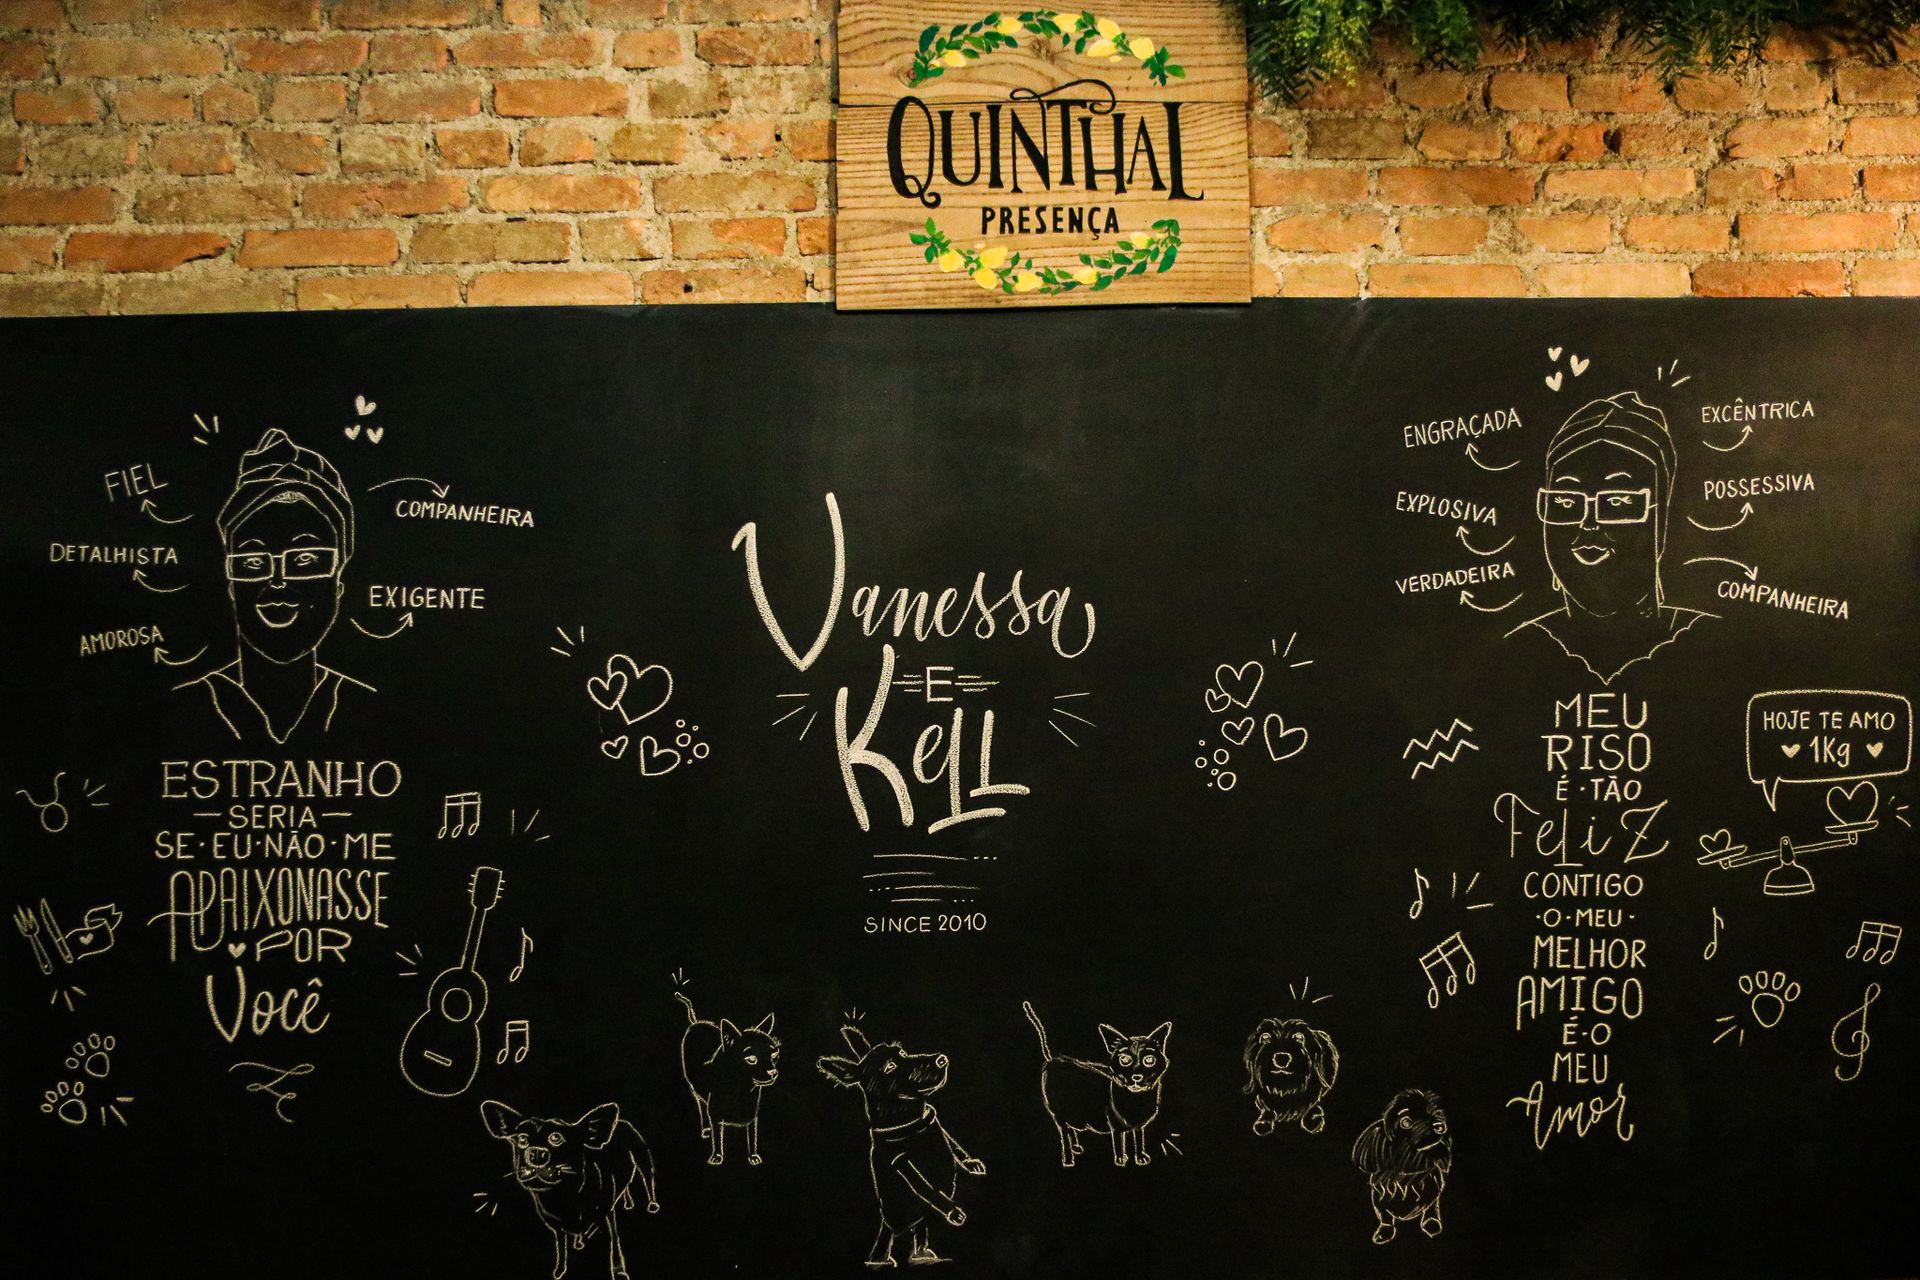 QUINTHAL
PRESENÇA
FIEL
COMPANHEIRA
DETALHISTA
EXIGENTE
AMOROSA
ESTRANHO
SERIA
SE·EU·NÃO·ME
APAIXONASSE
POR
Você
Vanessa
E
Kell
SINCE 2010
ENGRAÇADA
EXCÊNTRICA
EXPLOSIVA
POSSESSIVA
VERDADEIRA
COMPANHEIRA
MEU
RISO
É·TÃO
FeliZ
CONTIGO
·O·MEU·
MELHOR
AMIGO
É·O
MEU
Amor
HOJE TE AMO
1Kg